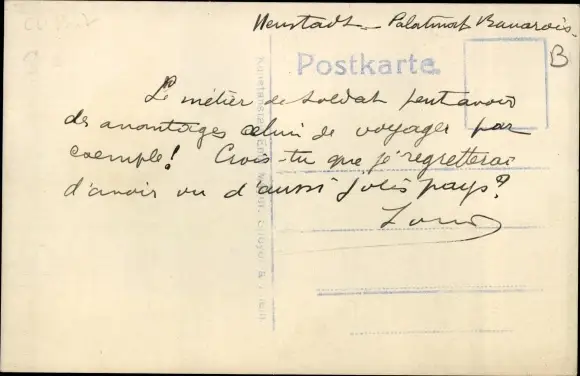 Neustadt - Palatinat Bavarois.
B
Postkarte.
Le métier de soldat peut avoir
des avantages celui de voyager par
exemple! Crois-tu que je regretterai
d'avoir vu d'aussi jolis pays?